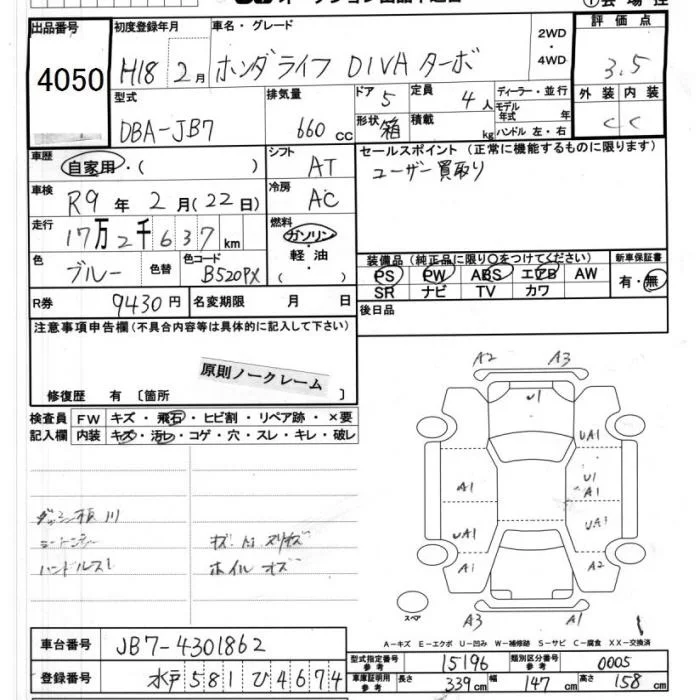 出品番号
4050
初度登録年月
H18 2月
車名・グレード
ホンダライフ DIVA ターボ
2WD
・
4WD
評価点
3.5
外装 内装
C C
型式
DBA-JB7
排気量
660 cc
ドア 5
形状 箱
定員 4人
積載 kg
ディーラー・並行
モデル年式 年
ハンドル 左・右
車歴
自家用・( )
シフト
AT
セールスポイント(正常に機能するものに限ります)
ユーザー買取り
車検
R9年 2月(22日)
冷房
AC
走行
17万2千637km
燃料
ガソリン
・
軽油
( ・ )
色
ブルー
色替
色コード
B520PX
装備品(純正品に限り○をつけてください)
PS PW ABS エアB AW
SR ナビ TV カワ
新車保証書
有・無
R券 9430円 名変期限 月 日
後日品
注意事項申告欄(不具合内容等は具体的に記入して下さい)
原則ノークレーム
修復歴 有 [箇所 ]
検査員 FW キズ・飛石・ヒビ割・リペア跡・×要
記入欄 内装 キズ・汚レ・コゲ・穴・スレ・キレ・破レ
ハンドルスレ
ホイルキズ
A2 A3
U1
UA1
A1
U1
A1
UA1
UA1
A1
A2
A3
A1
スペア
A-キズ E-エクボ U-凹み W-補修跡 S-サビ C-腐食 XX-交換済
車台番号 JB7-4301862
登録番号 水戸 581 ひ 4674
型式指定番号 参考 15196 類別区分番号 参考 0005
車庫証明用 参考 長さ 339cm 幅 147cm 高さ 158cm